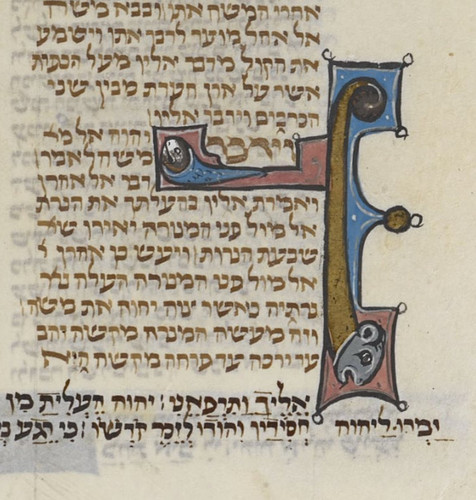 אחרי המשח אתו ובבא מש
אל אהל מועד לדבר אתו וישמע
את הקול מדבר אליו מעל הכפרת
אשר על ארן העדת מבין שני
הכרבים וידבר אליו
וידבר יהוה אל מ
משה לאמר
דבר אל אהרן
ואמרת אליו בהעלתך את הנרת
אל מול פני המנורה יאירו ש
שבעת הנרות ויעש כן אהרן
אל מול פני המנורה העלה נר
נרתיה כאשר צוה יהוה את משה
וזה מעשה המנרה מקשה זהב
עד ירכה עד פרחה מקשה היא
אליך ותרפאני: יהוה העלית מן
זמרו ליהוה חסידיו והודו לזכר קדשו: כי רגע